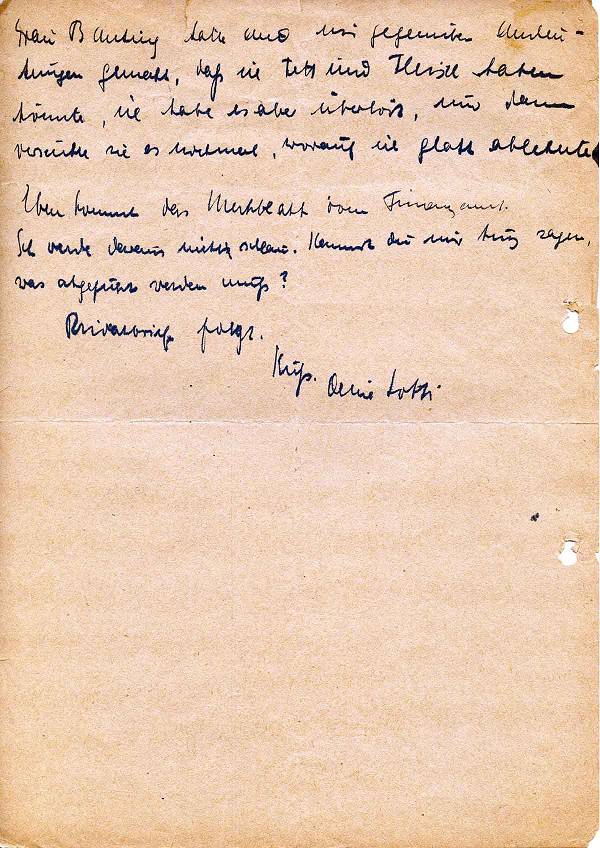 Frau hatte uns gegenüber Andeu-
tungen gemacht, daß sie Fett und Fleisch haben
könnte, sie habe es aber überhört, und dann
versuchte sie es nochmal, worauf sie glatt ablehnte
Eben kommt das Merkblatt vom Finanzamt.
Ich werde daraus nicht schlau. Kannst du mir sagen,
was abgeführt werden muß?
Privatbrief folgt.
Kuß. Deine Lotti